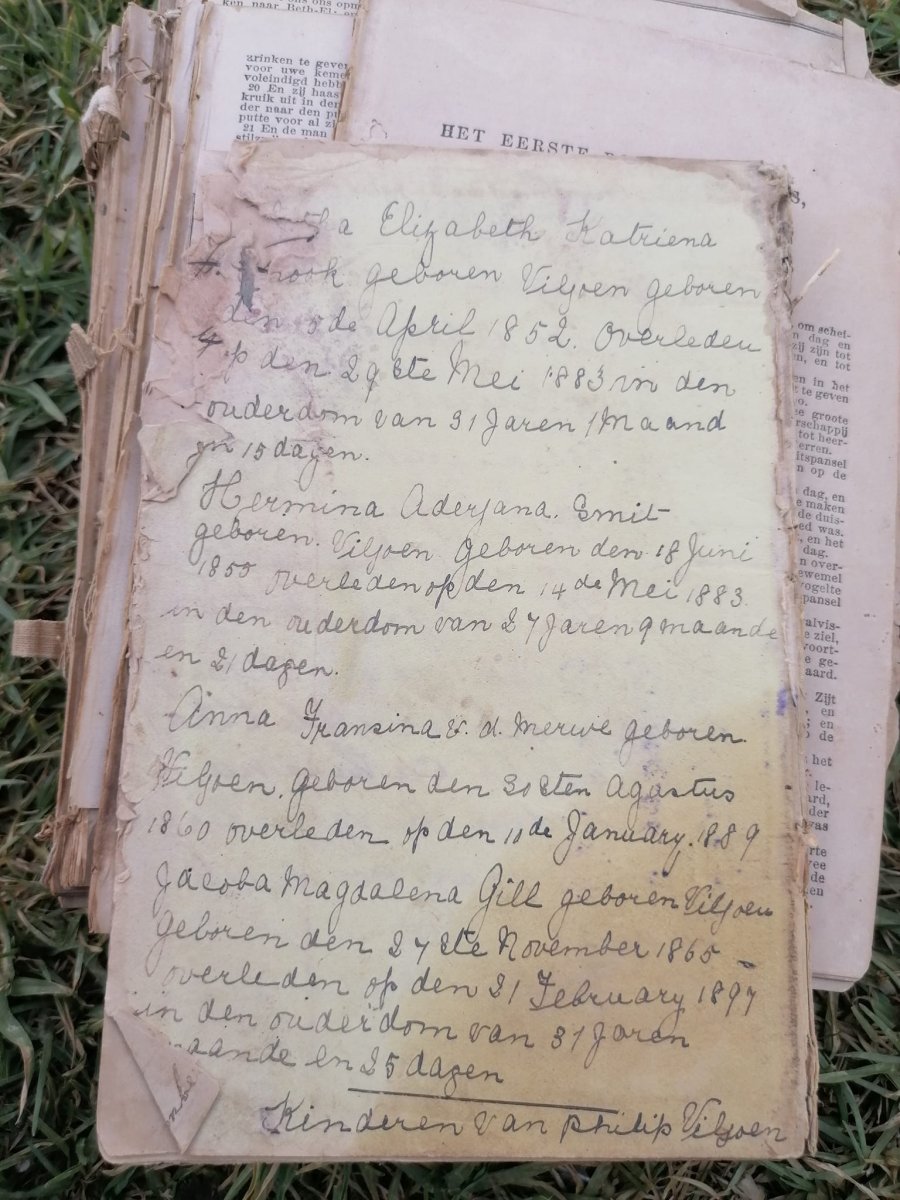 ken naar Beth-El
arinken te geven
voor uwe keme
voleindigd hebb
20 En zij haas
kruik uit in den
der naar den pu
putte voor al zi
21 En de man
HET EERSTE
s,
a Elizabeth Katriena
geboren Viljoen geboren
den 5de April 1852. Overleden
op den 29ste Mei 1883 in den
ouderdom van 31 Jaren 1 Maand
en 15 dagen.
Hermina Aderjana. Smit
geboren. Viljoen Geboren den 18 Juni
1855 overleden op den 14de Mei 1883.
in den ouderdom van 27 Jaren 9 maande
en 21 dagen.
Anna Fransina v. d. Merwe geboren
Viljoen. Geboren den 30sten Agustus
1860 overleden op den 11de January. 1889
Jacoba Magdalena Gill geboren Viljoen
Geboren den 27ste November 1865
overleden op den 21 February 1897
in den ouderdom van 31 Jaren
maande en 25 dagen
Kinderen van Philip Viljoen
om schef-
dag en
zij zijn tot
en, en tot
en in het
te geven
zoo.
groote
rschappij
tot heer-
erren.
itspansel
n op de
dag, en
e maken
de duis-
ed was.
, en het
dag.
n over-
ewemel
vogelte
pansel
alvis-
e ziel,
voort-
e ge-
aard.
Zijt
en
; en
de
het
le-
ard,
der
was
rte
vee
de
en